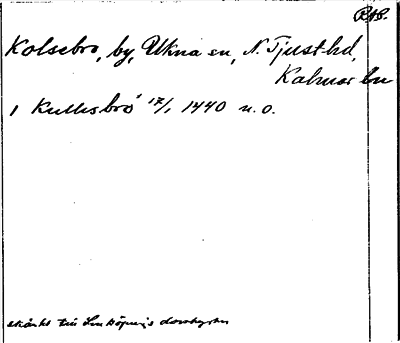 RAP.
Kolsebro, by, Ukna sn, N. Tjust hd,
Kalmar ln
i Kullesbro 17/1 1440 u. o.
skänkt till Linköpings domkyrka